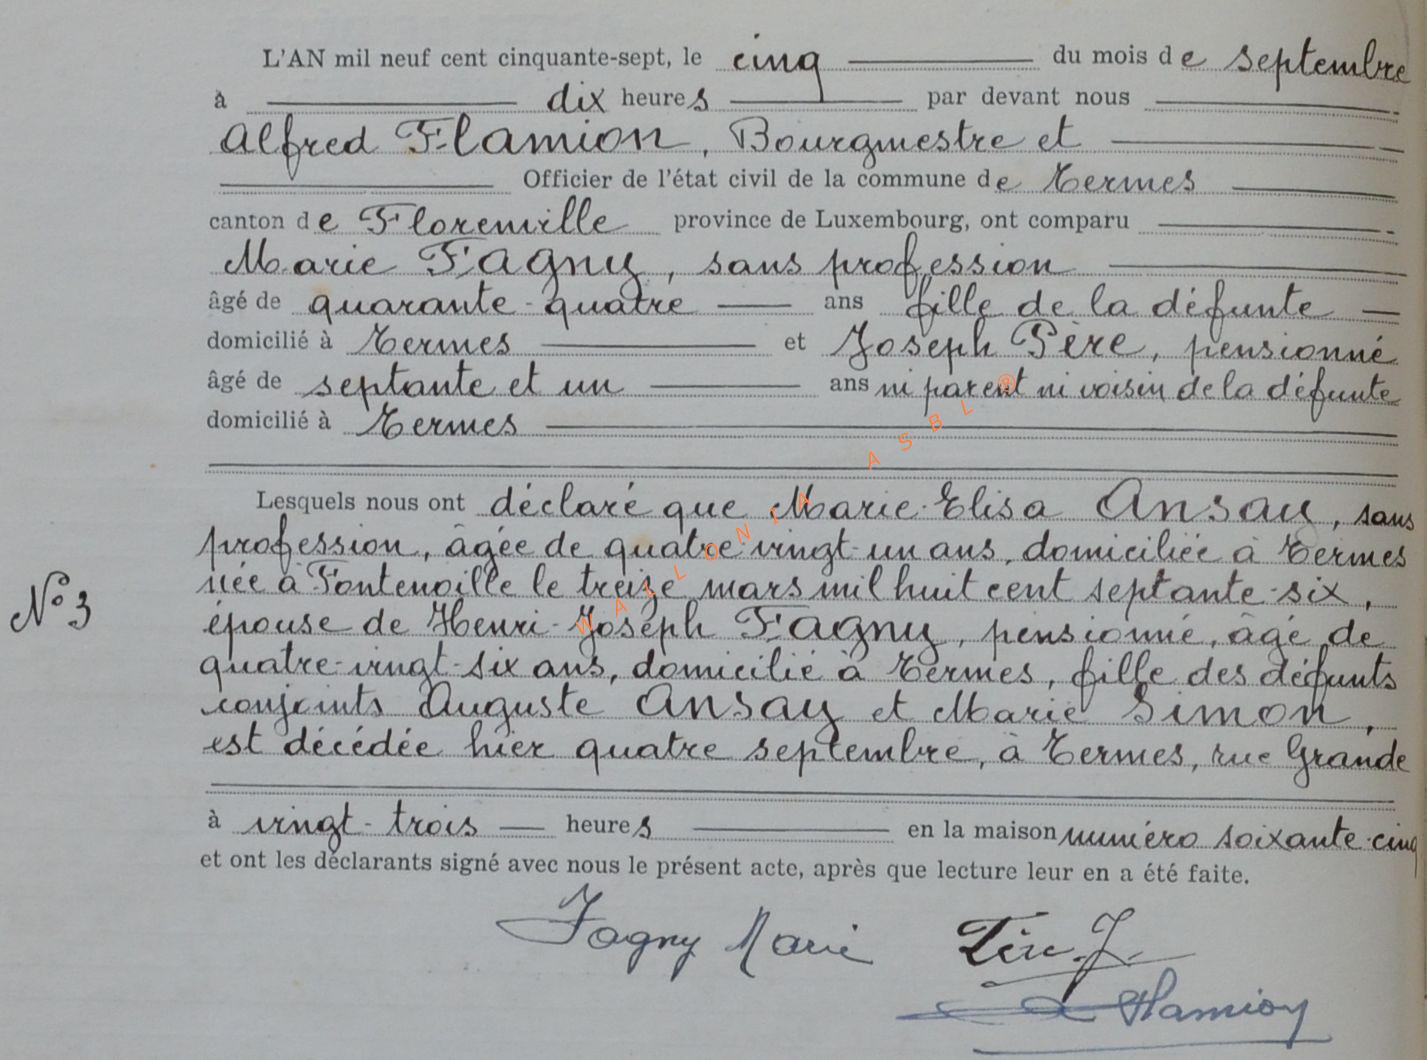 L'AN mil neuf cent cinquante-sept, le cinq du mois de septembre
à dix heures par devant nous
Alfred Flamion, Bourgmestre et
Officier de l'état civil de la commune de Termes
canton de Florenville province de Luxembourg, ont comparu
Marie Fagny, sans profession
âgé de quarante-quatre ans fille de la défunte
domicilié à Termes et Joseph Père, pensionné
âgé de septante et un ans ni parent ni voisin de la défunte
domicilié à Termes
Lesquels nous ont déclaré que Marie-Elisa Ansay, sans
profession, âgée de quatre-vingt-un ans, domiciliée à Termes
née à Fontenoille le treize mars mil huit cent septante-six,
N° 3
épouse de Henri-Joseph Fagny, pensionné, âgé de
quatre-vingt-six ans, domicilié à Termes, fille des défunts
conjoints Auguste Ansay et Marie Simon,
est décédée hier quatre septembre, à Termes, rue Grande
à vingt-trois heures en la maison numéro soixante-cinq
et ont les déclarants signé avec nous le présent acte, après que lecture leur en a été faite.
Fagny Marie Père J.
Flamion
WALLONIA ASBL ®